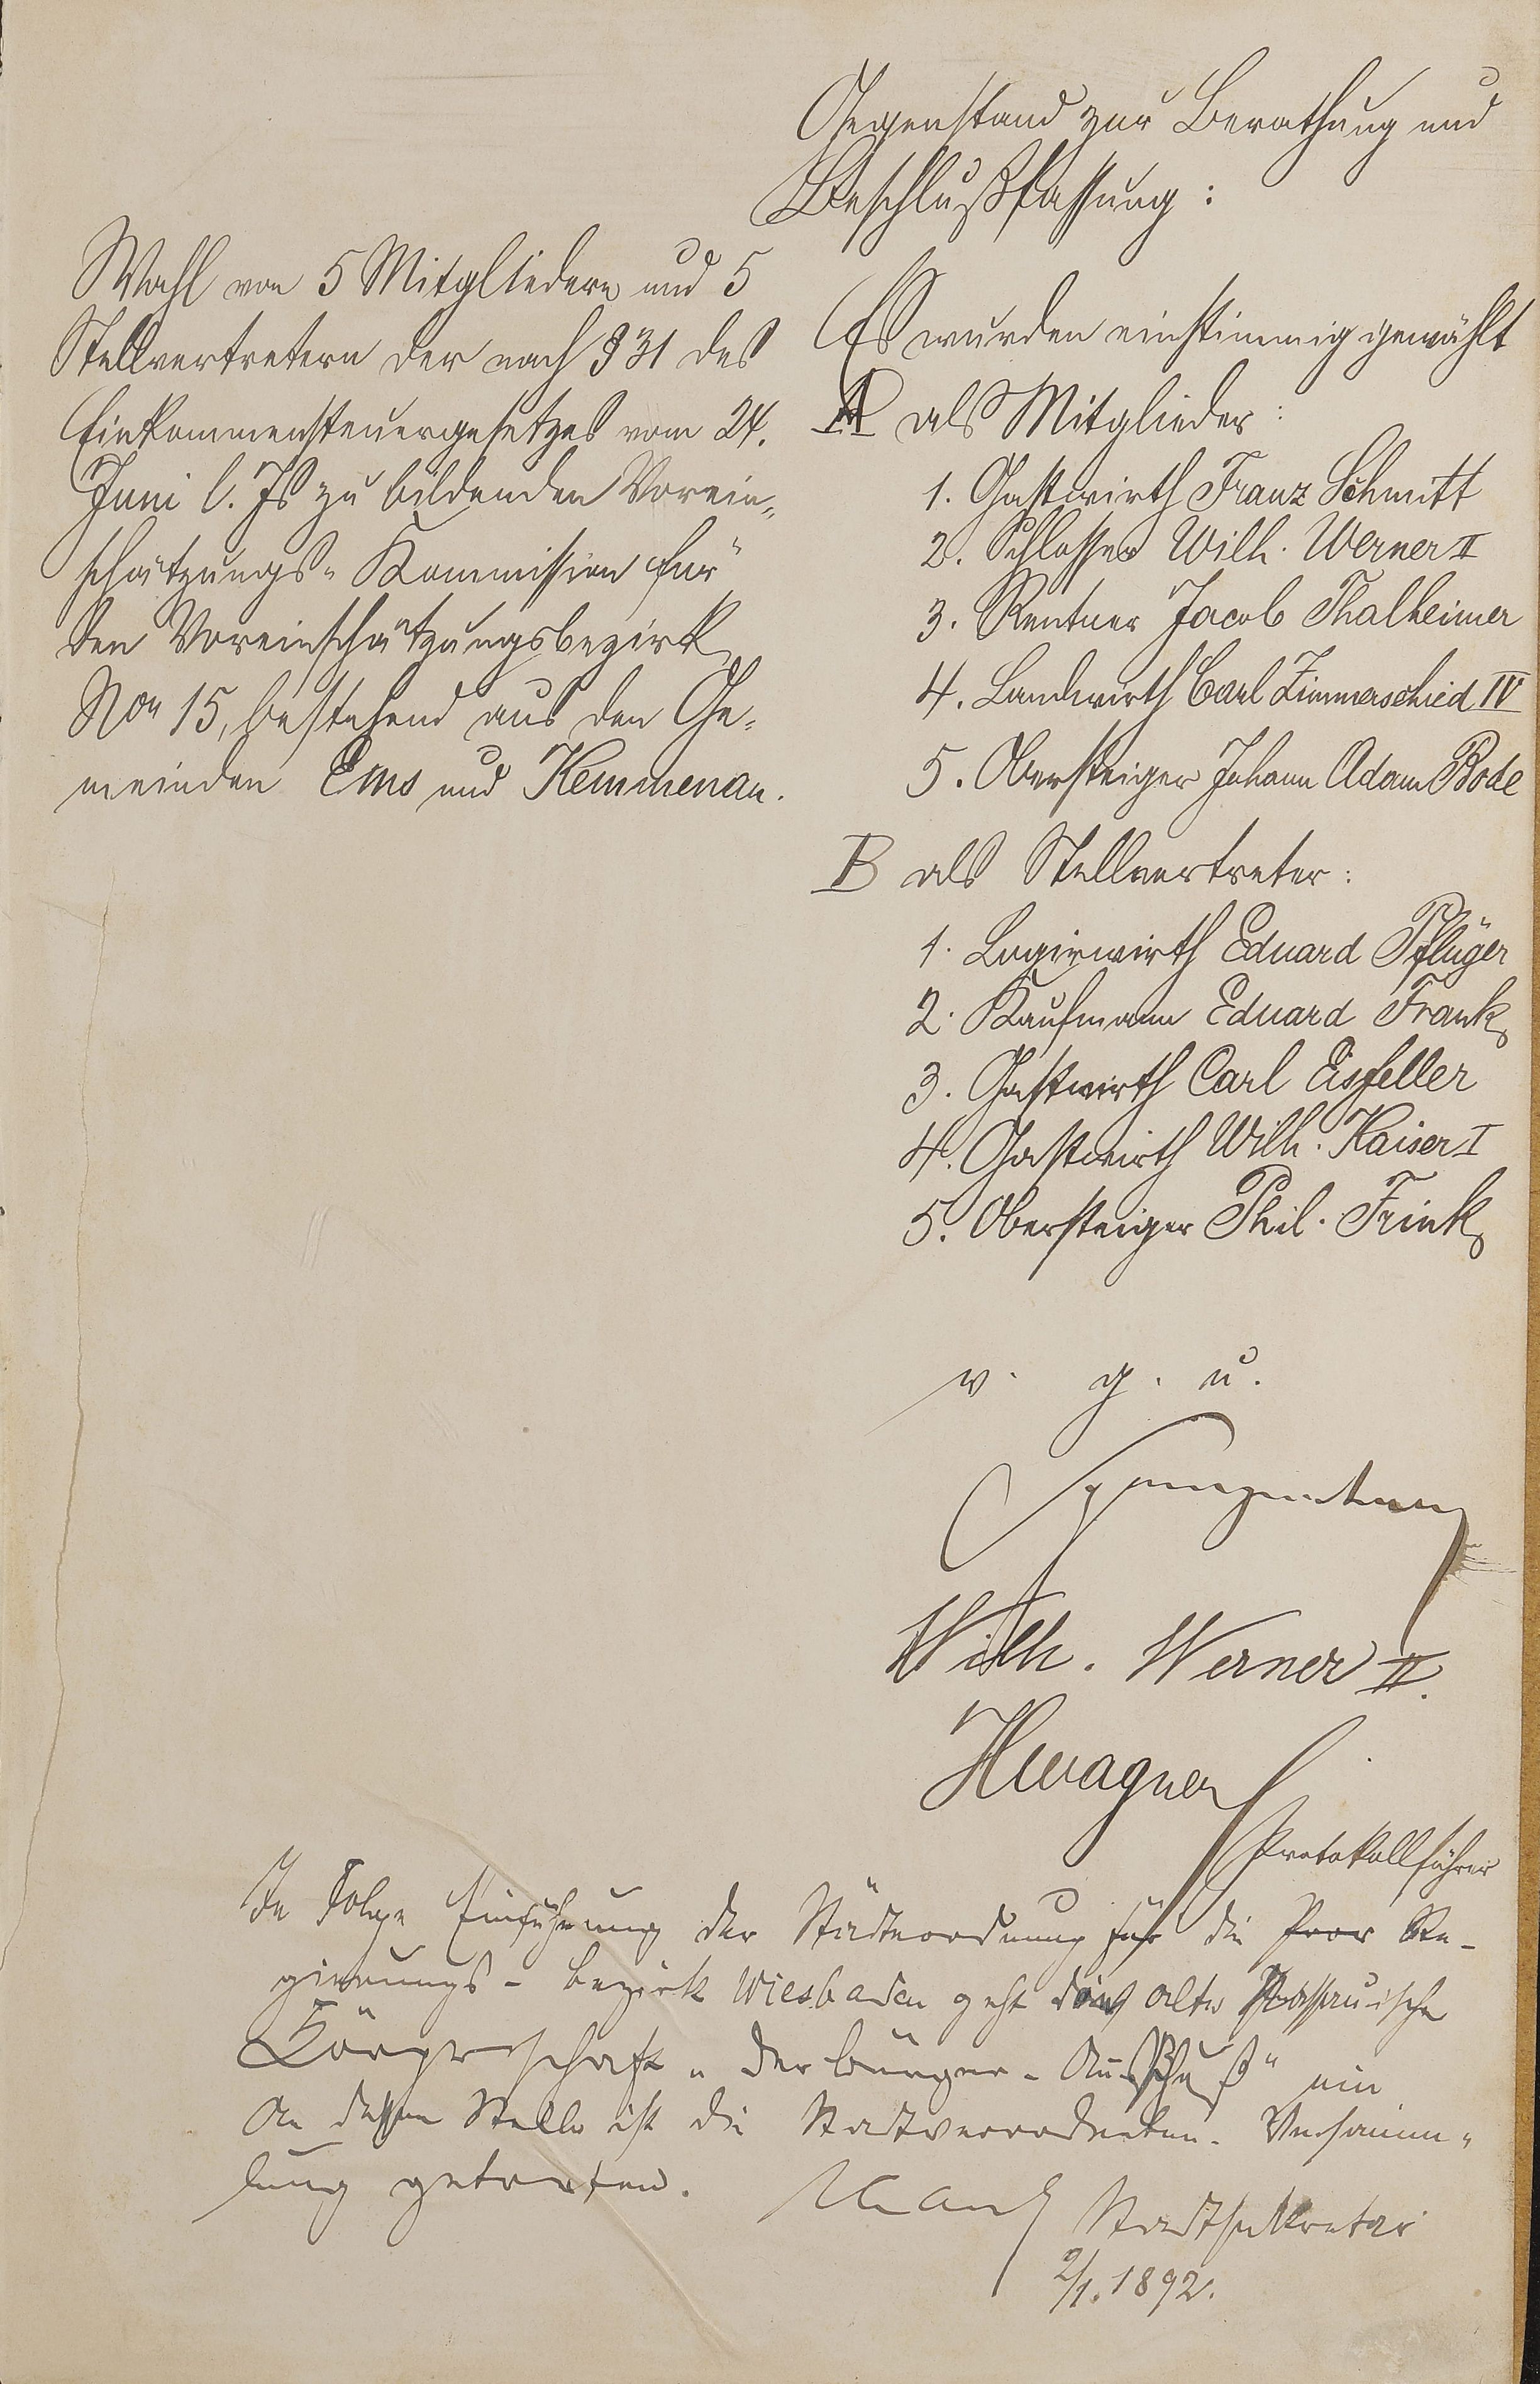 Gegenstand zur Berathung und
Beschlußfassung:
Wahl von 5 Mitgliedern und 5
Stellvertretern der nach § 31 des
Einkommensteuergesetzes vom 24.
Juni l. Js zu bildenden Vorein-
schätzungs-Kommission für
den Voreinschätzungsbezirk
Nro 15, bestehend aus den Ge-
meinden Ems und Kemmenau.
Es wurden einstimmig gewählt
A als Mitglieder:
1. Gastwirth Franz Schmitt
2. Schlosser Wilh. Werner II
3. Rentner Jacob Thalheimer
4. Landwirth Carl Zimmerschied IV
5. Obersteiger Johann Adam Bode
B als Stellvertreter:
1. Logirwirth Eduard Pflüger
2. Kaufmann Eduard Frank
3. Gastwirth Carl Eisfeller
4. Gastwirth Wilh. Kaiser I
5. Obersteiger Phil. Frink
v. g. u.
Wilh. Werner II.
HWagner
Protokollführer
In Folge Einführung der Städteordnung für die Re-
gierungs-bezirk Wiesbaden geht die alte Nassauische
Körperschaft „der Bürger-Ausschuß" ein
An dessen Stelle ist die Stadtverordneten-Versamm-
lung getreten.
Stadtsekretär
2/1. 1892.